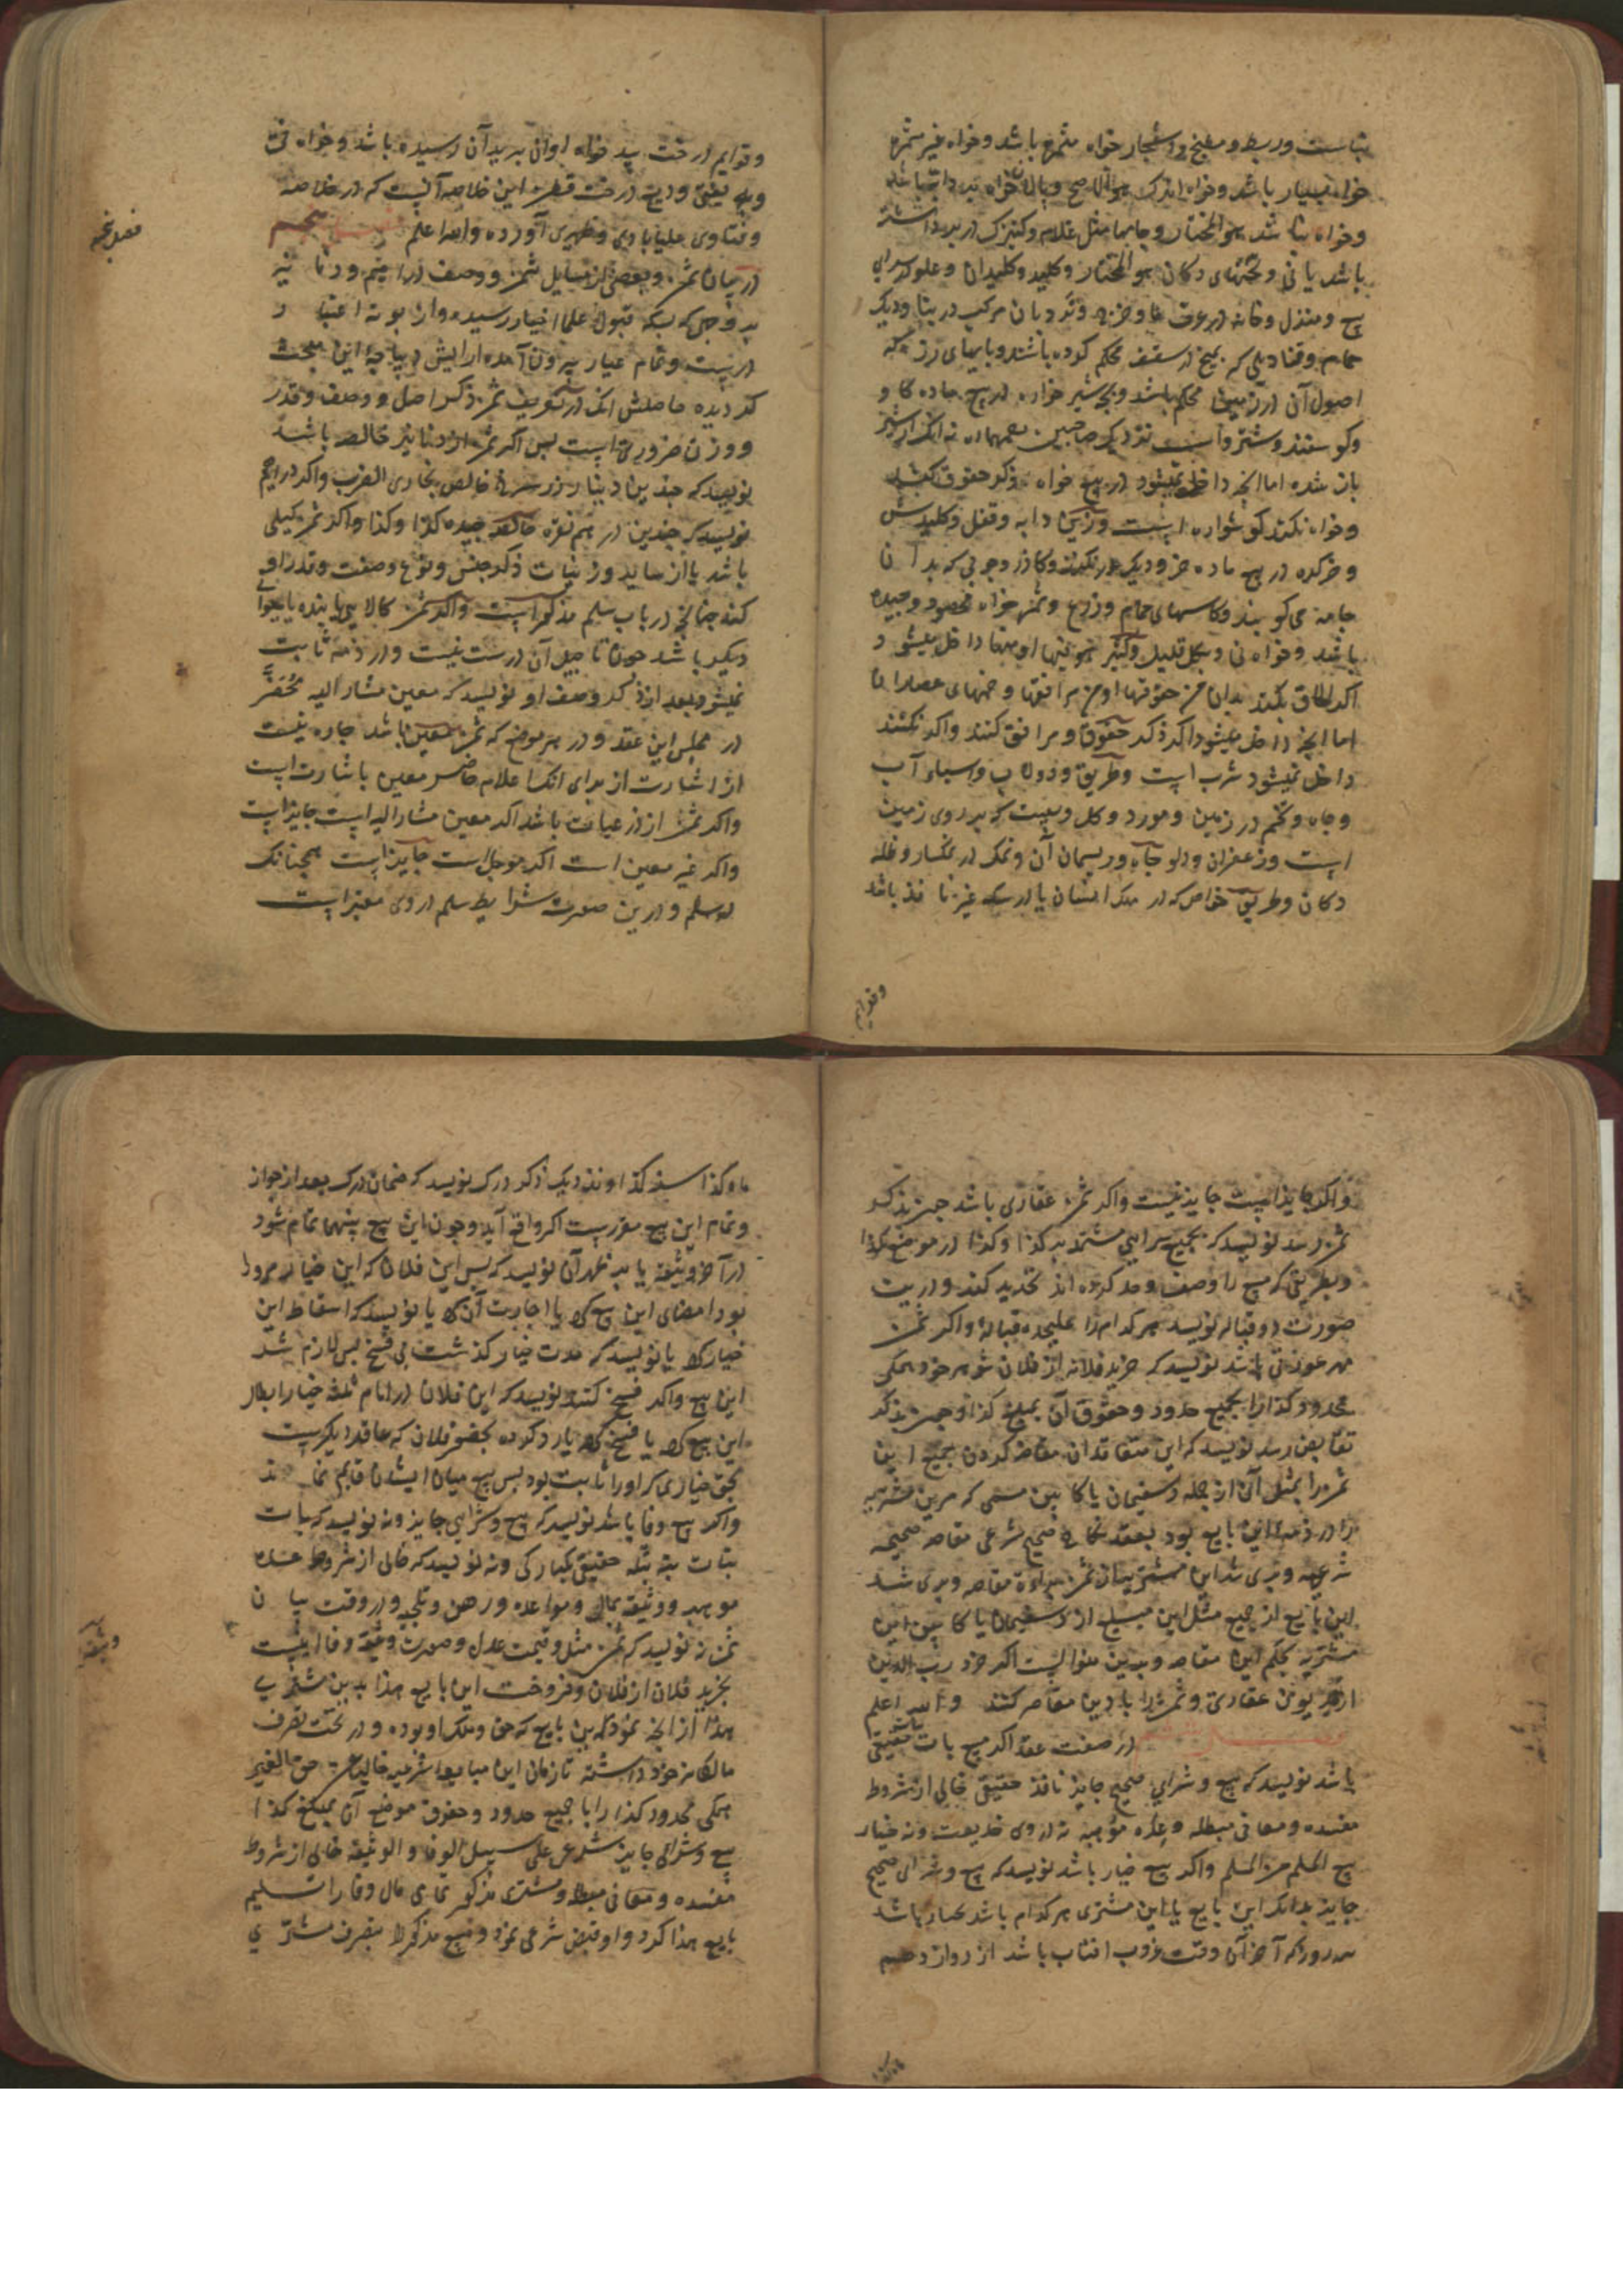 بناست و ربط و مطبخ و اشجار خواه مثمره باشد و خواه غیر مثمره
خواه بسیار باشد و خواه اندک هو الاصح و پالان خواه بر دابه باشد
و خواه نباشد هو المختار و جامها مثل غلام و کنیزک در بر داشته
باشد یا نی و تختهای دکان هو المختار و کلید و کلیدان و علو سرای
بیع و منزل و خانه در عرف ما و خر و نردبان مرکب در بنا و دیک
حمام و قنادیلی که بمیخ در سقف محکم کرده باشند و پایهای رز که
اصول آن در زمین محکم باشد و بچه شیر خواره در بیع ماده گاو
و گوسفند و شتر و اسب نزدیک صاحبین
باشد اما آنچه داخل نمیشود در بیع خواه ذکر حقوق کنند
و خواه نکنند گوشواره است و زین دابه و قفل و کلیدش
و خر کره در بیع ماده خر و دیک و گازر و چوبی که بر آن
جامه می کوبند و کاسهای حمام و زرع و ثمر خواه محصود و چیده
باشد و خواه نی و بکل قلیل و کثیر هو فیها او منها داخل میشود
اگر اطلاق بکنند بدان من حقوقها او من مرافقها و خمهای عصاران
اما آنچه داخل میشود اگر ذکر حقوق و مرافق کنند و اگر نکنند
داخل نمیشود شرب است و طریق و دولاب و اسباء آب
و چاه و تخم در زمین و مورد و کل وسیت که بر روی زمین
است و زعفران و دلو چاه و ریسمان آن و نمک در نمکسار و ظله
دکان و طریق خاص که در ملک انسان یا در سکه غیر نافذ باشد
و قوایم
و قوایم درخت بید خواه اوان برید آن رسیده باشد و خواه نی
و به یفتی و در بیع درخت قطن این خلاصه آنست که در خلاصه
و فتاوی علیابادی و ظهیری آورده و الله اعلم فصل پنجم
در بیان ثمن و بعضی از مسایل ثمن و وصف دراهیم و دنانیر
بر وجهی که بسکه قبول علما اخیار رسیده و از بوته اعتبار
درست و تمام عیار بیرون آمده آرایش دیباچه این مبحث
گردیده حاصلش آنکه در تعریف ثمن ذکر اصل و وصف و قدر
و وزن ضروریست پس اگر ثمن از دنانیر خالص باشد
نویسد که چندین دینار زر سرخ خالص بخاری الضرب و اگر دراهیم
نویسد که چندین درهم نقره خالصه جیده کذا و کذا و اگر ثمن کیلی
باشد یا از سایر وزنیات ذکر جنس و نوع و صفت و قدر او
کند چنانچه در باب سلم مذکور است و اگر ثمن کالایی یا بنده یا حیوانی
دیگر باشد چون تاجیل آن درست نیست و در ذمه ثابت
نمیشود بعد از ذکر وصف او نویسد که معین مشار الیه محضر
در مجلس این عقد و در هر موضع که ثمن معین باشد چاره نیست
از اشارت از برای آنکه اعلام حاضر معین باشارت است
و اگر ثمن از ذرعیات باشد اگر معین مشار الیه است جایز است
و اگر غیر معین است اگر موجل است جایز است همچنانکه
در سلم و درین صورت شرایط سلم در وی معتبر است
فصل پنجم
و اگر جایز است جایز نیست و اگر ثمن عقاری باشد چون بذکر
ثمن رسد نویسد که بجمیع سرای مشتمله بر کذا و کذا در موضع کذا
و بطریقی که بیع را وصف و حد کرده اند تحدید کند و درین
صورت دو قباله نویسد هر کدام را علیحده قباله و اگر ثمن
مهر عورتی باشد نویسد که خرید فلانه از فلان شوهر خود همگی
محدود کذا را بجمیع حدود و حقوق آن بمبلغ کذا و چون بذکر
تقابض رسد نویسد که این متعاقدان مقاصه کردن بجمیع این
ثمن را بمثل آن از جمله دستپیمان یا کابین مسمی که مرین مشتریه
را در ذمه این بایع بود بعقد نکاح صحیح شرعی مقاصه صحیحه
شرعیه و بری شد این مشتریه از ثمن براءة مقاصه و بری شد
این بایع از جمیع مثل این مبلغ از دستپیمان یا کابین این
مشتریه بحکم این مقاصه و بدین منوالست اگر خرد رب الدین
از مدیون عقاری و ثمن را با دین مقاصه کنند و الله اعلم
فصل ششم در صفت عقد اگر بیع بات حقیقی
باشد نویسد که بیع و شرای صحیح جایز نافذ حقیقی خالی از شروط
مفسده و معانی مبطله و عده مؤهبه نه از روی خدیعت و نه خیار
بیع المسلم من المسلم و اگر بیع خیار باشد نویسد که بیع و شرای صحیح
جایز بدانکه این بایع یا این مشتری هر کدام باشد مختار باشد
سه روز که آخر آن وقت غروب افتاب باشد از روز دهم
ماه کذا
ماه کذا سنه کذا و نزدیک ذکر درک نویسد که ضمان درک بعد از جواز
و تمام این بیع مقررست اگر واقع آید و چون این بیع بینهما تمام شود
در آخر وثیقه یا بر ظهر آن نویسد که پس این فلان که این خیار مرورا
بود امضای این بیع کرد یا اجازت آن کرد یا نویسد که اسقاط این
خیار کرد یا نویسد که مدت خیار گذشت بی فسخ پس لازم شد
این بیع و اگر فسخ کنند نویسد که این فلان در ایام ثلثه خیار ابطال
این بیع کرد یا فسخ کرد یا رد کرده بحضور فلان که عاقد دیگریست
بحق خیاری که او را ثابت بود پس بیع میان ایشان قایم نماند
و اگر بیع وفا باشد نویسد که بیع و شرای جایز و نه نویسد که بات
بتات بته بتله حقیقی یکبارگی و نه نویسد که خالی از شروط عده
موهبه و وثیقه بمال و مواعده و رهن و تلجیه و در وقت بیان
ثمن نه نویسد که ثمن مثل و قیمت عدل و صورت وثیقه وفا اینست
بخرید فلان از فلان و فروخت این بایع هذا بدین مشتری
هذا از آنچه نمود این بایع که حق و ملک او بوده و در تحت تصرف
مالکانه خود داشته تا زمان این مبایعه شرعیه خالیا عن حق الغیر
همگی محدود کذا را با جمیع حدود و حقوق موضع آن بمبلغ کذا
بیع و شرای جایز شرعی علی سبیل الوفا و الوثیقه خالی از شروط
مفسده و معانی مبطله و مشتری مذکور تمامی مال وفا را تسلیم
بایع هذا کرد و او قبض شرعی نمود و مبیع مذکور را بتصرف مشتری
وثیقه